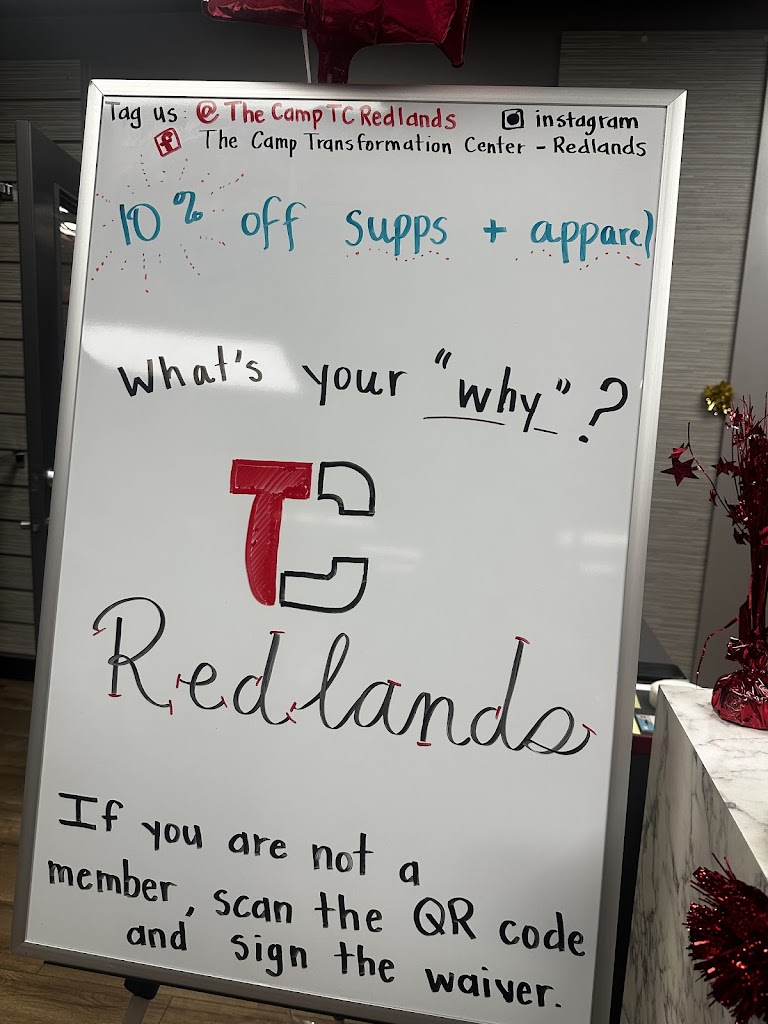 Tag us: @ The Camp TC Redlands instagram
f The Camp Transformation Center - Redlands
10% off supps + apparel
What's your "why"?
TC
Redlands
If you are not a
member, scan the QR code
and sign the waiver.